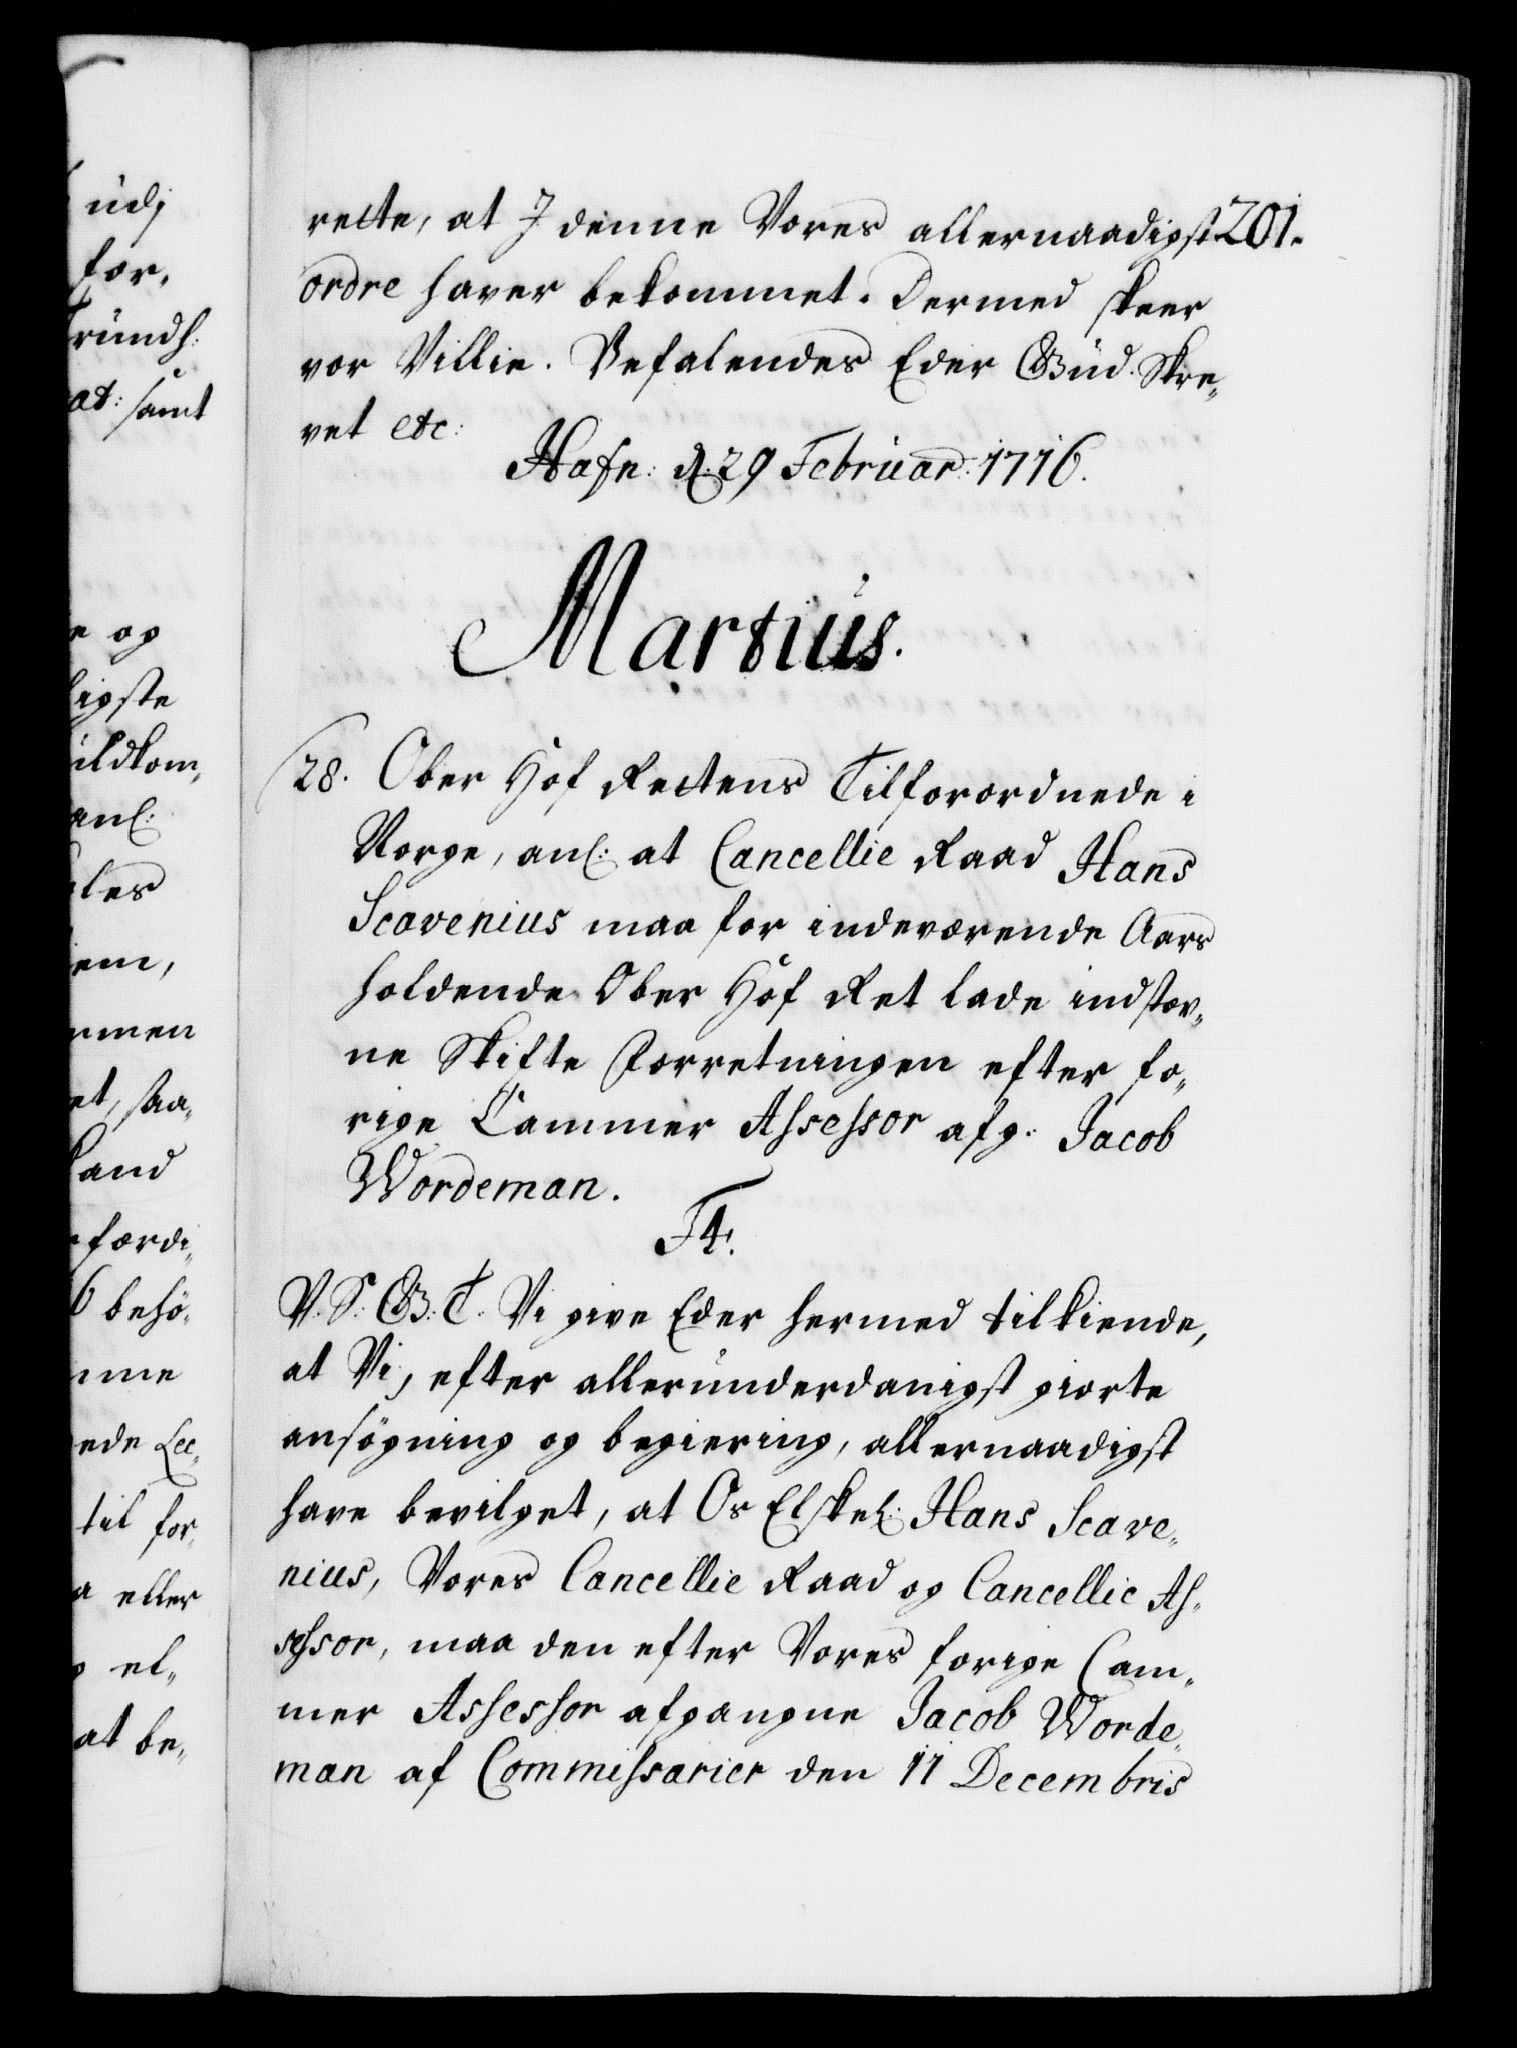 udj
for„
rundh:
at: samt
e og
ligste
uldkom„
anl:
les
iem,
rmen
et, saa„
land
færdi„
6 behö„
mme
ede Lec„
til for„
a eller
el„
at be„
rette, at I denne Vores allernaadigst 201.
ordre haver bekommet. Dermed skeer
vor Villie. Befalendes Eder Gud. Skre„
vet etc:
Hafn: d. 29 Februar: 1716.
Martius.
28. Ober Hof Rettens Tilforordnede i
Norge, anl: at Cancellie Raad Hans
Scavenius maa for indeværende Aars
holdende Ober Hof Ret lade indstæv„
ne Skifte Forretningen efter fo„
rige Cammer Assessor afg: Jacob
Wordeman.
F4.
V. S: G: T. Vi give Eder hermed tilkiende,
at Vi, efter allerunderdanigst giorte
ansögning og begiering, allernaadigst
have bevilget, at Os Elskel: Hans Scave„
nius, Vores Cancellie Raad og Cancellie As„
sessor, maa den efter Vores forige Cam„
mer Assessor afgangne Jacob Worde„
man af Commissarier den 11 Decembris